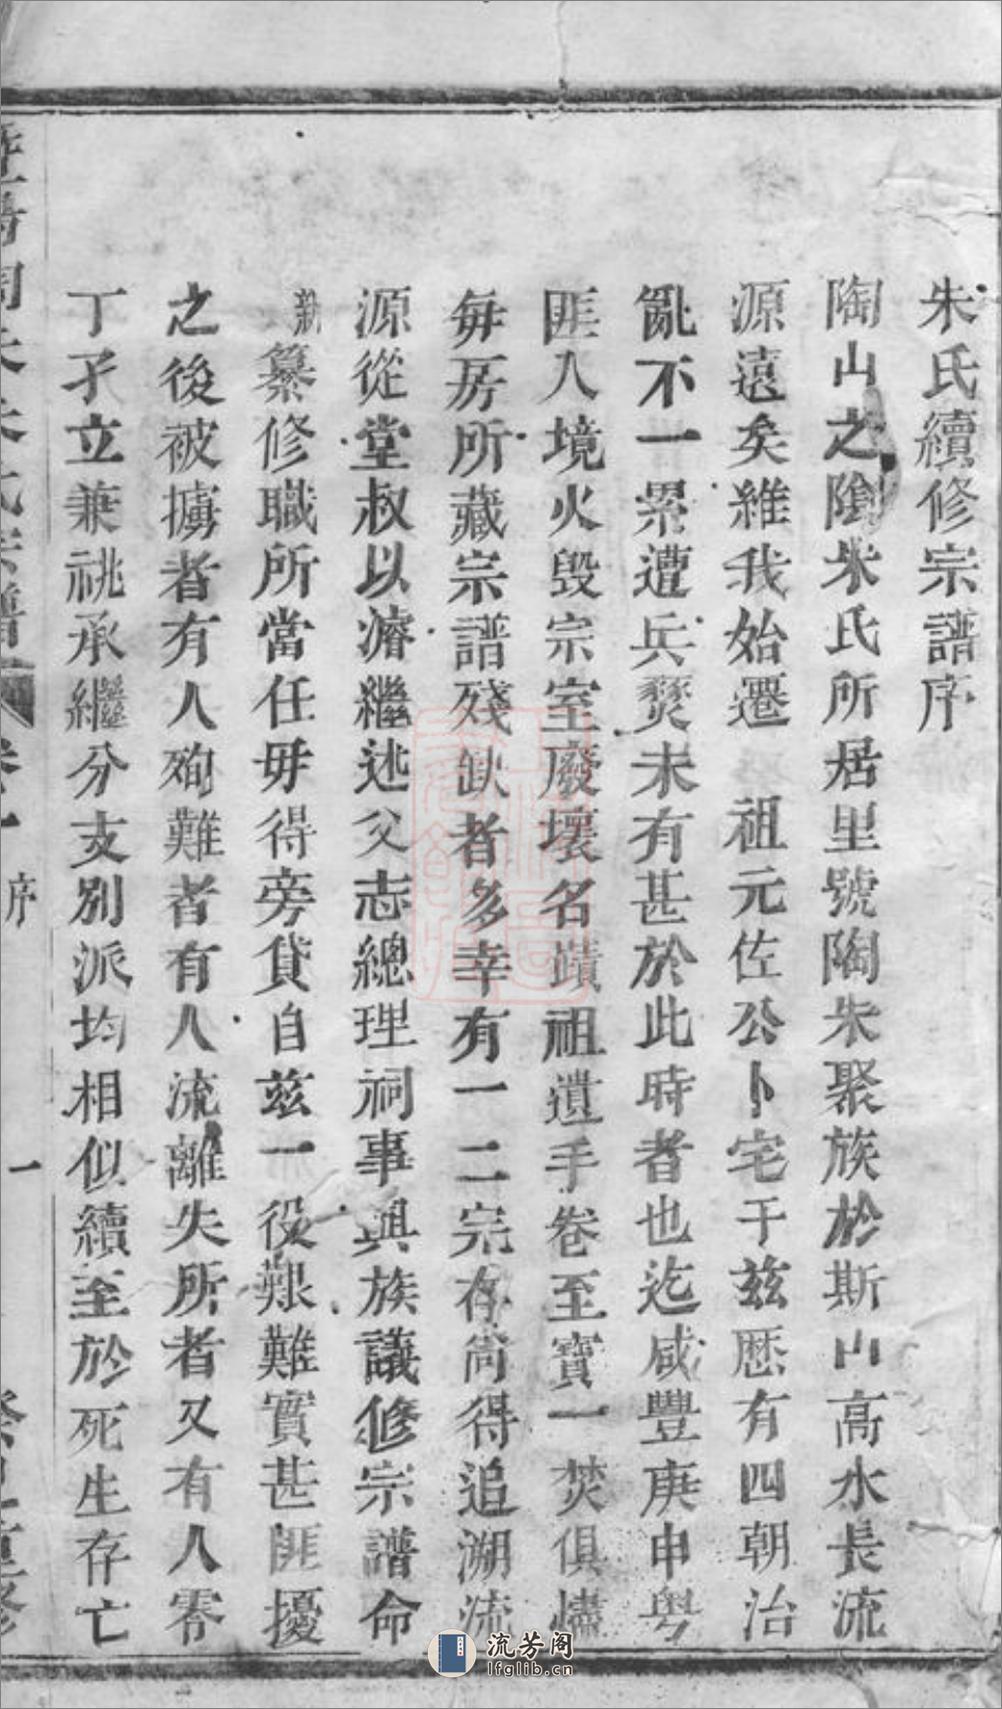 朱氏續修宗譜序
陶山之陰朱氏所居里號陶朱聚族於斯山高水長流
源遠矣維我始遷　祖元佐公卜宅于兹歷有四朝治
亂不一累遭兵燹未有甚於此時者也迄咸豐庚申粤
匪入境火毁宗室廢壞名蹟祖遺手卷至寶一焚俱燼
每房所藏宗譜殘缺者多幸有一二宗存尚得追溯流
源從堂叔以濬繼述父志總理祠事與族議修宗譜命
新纂修職所當任毋得旁貸自兹一役艱難實甚匪擾
之後被擄者有人殉難者有人流離失所者又有人零
丁孑立兼祧承繼分支别派均相似續至於死生存亡
朱氏宗譜 卷一 序 一 重修
流芳阁
lfglib.cn